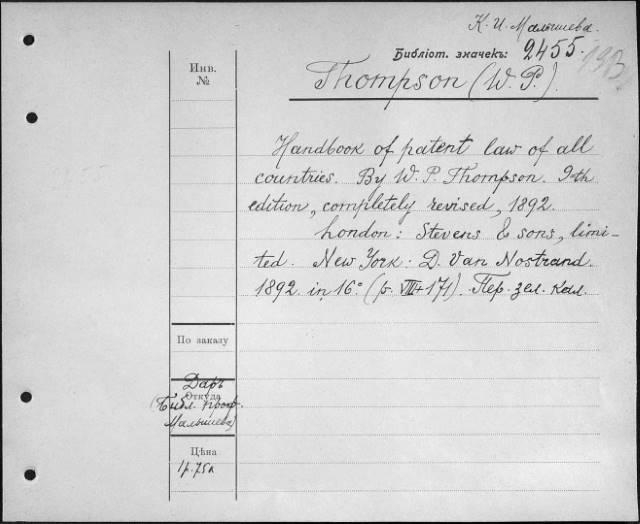 К. И. Малышева.
Библіот. значекъ: 2455.
Инв. №
Thompson (W. P.).
Handbook of patent law of all
countries. By W. P. Thompson. 9th
edition, completely revised, 1892.
London: Stevens & sons, limi-
ted. New York: D. Van Nostrand.
1892. in 16° (p. VIII+171). Пер. зел. кол.
По заказу
Даръ
Откуда
(Библ. проф.
Малышева)
Цѣна
1р.75к